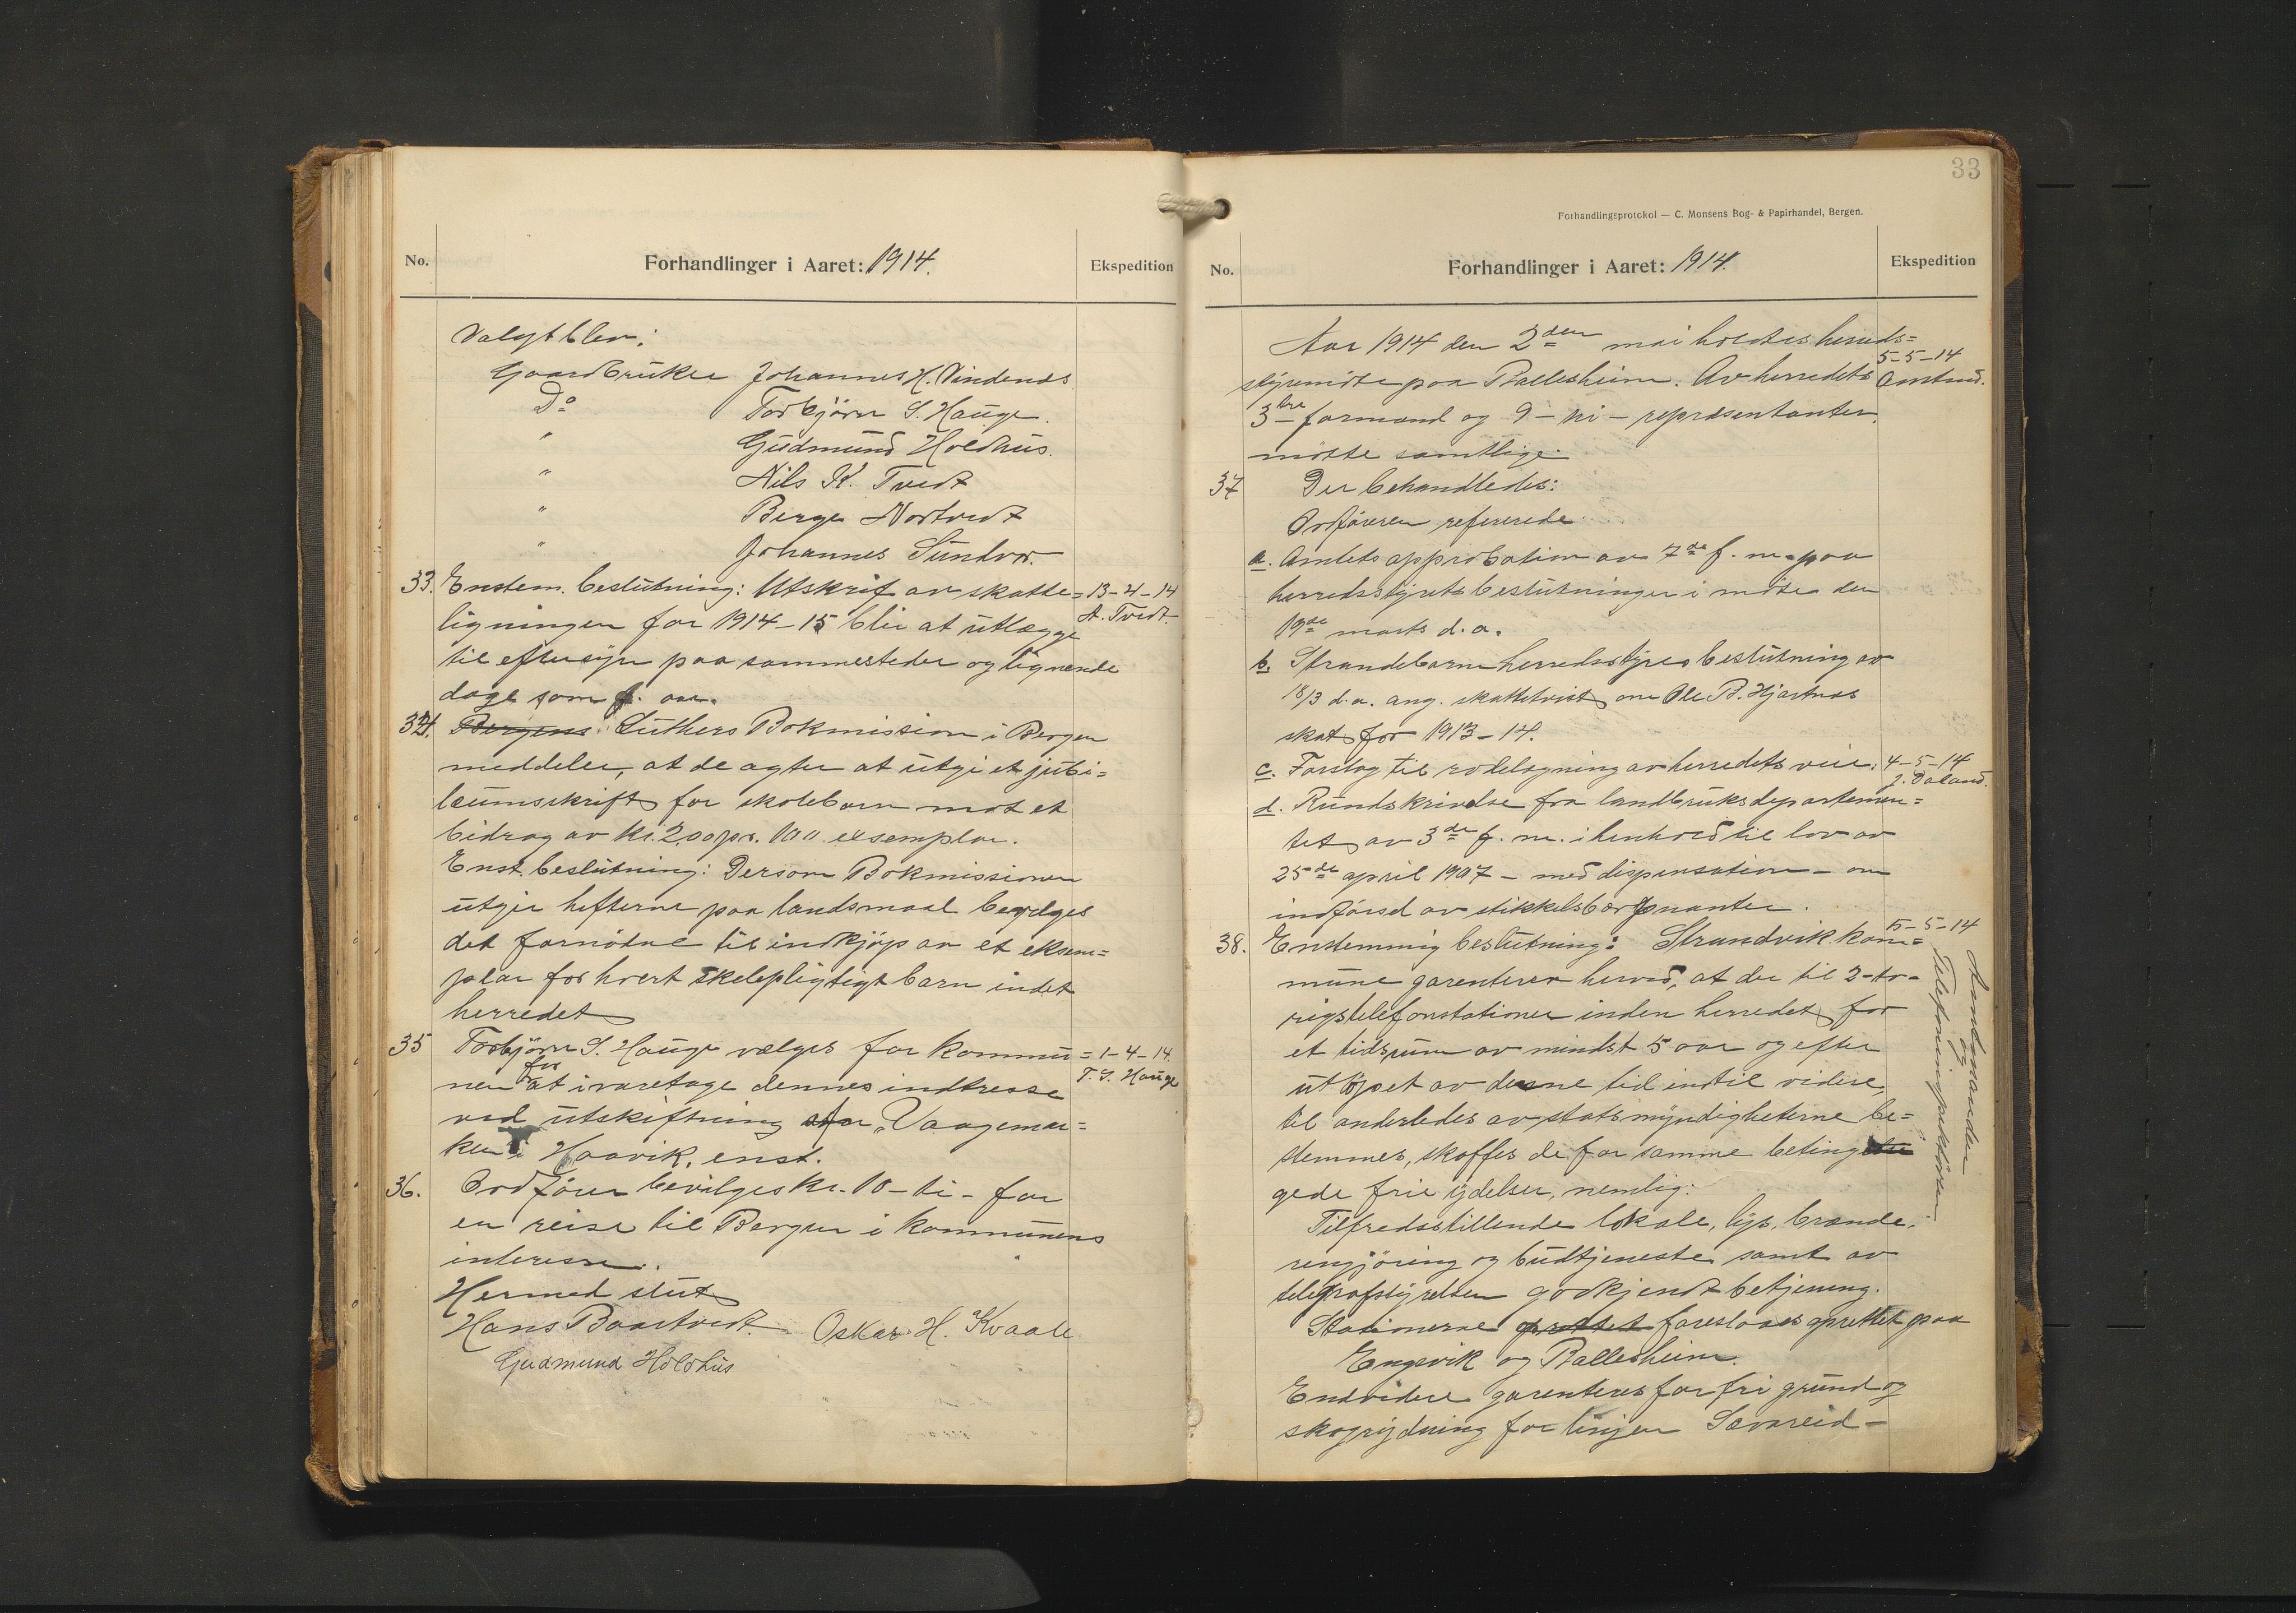 No.
Forhandlinger i Aaret: 1914.
Ekspedition
Valgt blev:
Gaardbruker Johannes H. Vindenes
Do Torbjörn S. Hauge.
" Gudmund Holdhus.
" Nils K. Tvedt
" Berge Nortvedt
" Johannes Sundvor.
33. Enstem. beslutning: Utskrif av skatte= 13-4-14
ligningen for 1914-15 blir at utlægge A. Tvedt.
til eftersyn paa sammesteder og lignende
dage som f. aar.
34. Bergens: Luthers Bokmission i Bergen
meddeler, at de agter at utgi et jubi=
læumsskrift for skolebarn mot et
bidrag av kr. 2,00 pr. 100 exsemplar.
Enst. beslutning: Dersom Bokmissionen
utgir hefterne paa landsmaal bevilges
det fornödne til indkjöp av et eksem=
plar for hvert skolepligtigt barn indet
herredet
35 Torbjörn S. Hauge vælges for kommu= 1-4-14.
nen for at ivaretage dennes indtresse T. S. Hauge
ved utskiftning av „Vaagemar=
ken i Haavik, enst.
36. Ordförer bevilges kr. 10 - ti - for
en reise til Bergen i kommunens
interesse.
Hermed slut
Hans Baartvedt. Oskar H. Kvaale
Gudmund Holdhus
33
Forhandlingsprotokol — C. Monsens Bog- & Papirhandel, Bergen.
No.
Forhandlinger i Aaret: 1914.
Ekspedition
Aar 1914 den 2den mai holdtes herreds=
styremöte paa Ballesheim. Av herredets 5-5-14 Amtmd.
3 tre formænd og 9 - ni - repræsentanter
mötte samtlige.
37 Der behandledes:
Ordföreren refererede
a. Amtets approbation av 7de f. m. paa
herredsstyrets beslutninger i möte den
19de marts d. a.
b. Strandebarm herredsstyres beslutning av
18/3 d. a. ang. skattetvist om Ole B. Hjartnes
skat for 1913-14.
c. Forslag til rodelægning av herredets veie. 4-5-14
J. Daland.
d. Rundskrivelse fra landbruksdepartemen=
tet av 3de f. m. i henhold til lov av
25de april 1907 - med dispensation - om
indförsel av stikkelsbærplanter.
38. Enstemmig beslutning: Strandvik kom= 5-5-14
mune garenterer herved, at der til 2-to-
rigstelefonstationer inden herredet for
et tidsrum av mindst 5 aar og efter
utlöpet av denne tid indtil videre,
til anderledes av statsmyndigheterne be=
stemmes, skaffes de for samme beting
gede frie ydelser, nemlig:
Tilfredsstillende lokale, lys, brænde,
rengjöring og budtjeneste samt av
telegrafstyrelsen godkjendt betjening.
Stationerne oprettet foreslaaes oprettet paa
Engevik og Ballesheim.
Endvidere garenteres for fri grund og
skogrydning for linjen Sævareid-
Amtmanden
og
Telefoninspektören